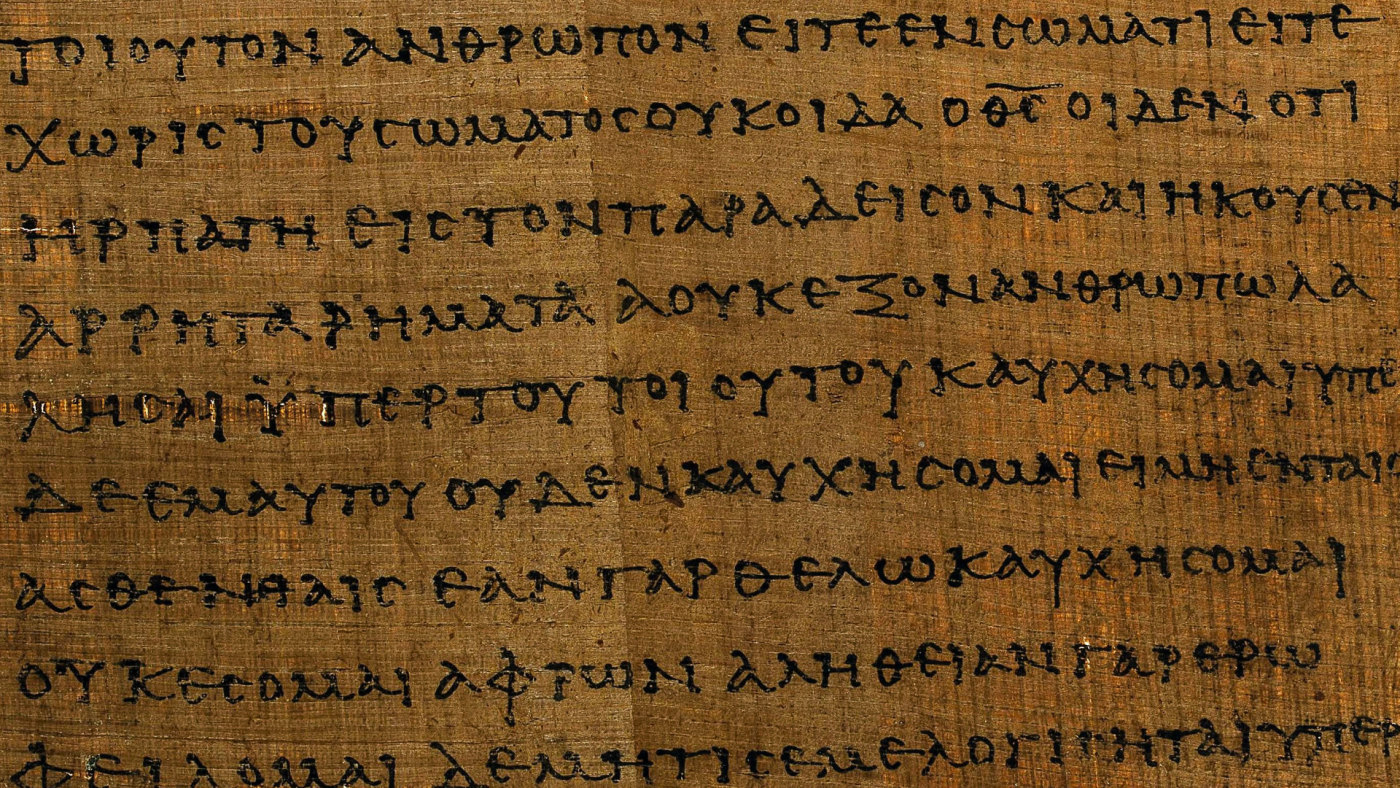 ΤΟΙΟΥΤΟΝ ΑΝΘΡΩΠΟΝ ΕΙΤΕ ΕΝ ΣΩΜΑΤΙ ΕΙΤΕ
ΧΩΡΙΣ ΤΟΥ ΣΩΜΑΤΟΣ ΟΥΚ ΟΙΔΑ Ο Θ̅Σ̅ ΟΙΔΕΝ ΟΤΙ
ΗΡΠΑΓΗ ΕΙΣ ΤΟΝ ΠΑΡΑΔΕΙΣΟΝ ΚΑΙ ΗΚΟΥΣΕΝ
ΑΡΡΗΤΑ ΡΗΜΑΤΑ Α ΟΥΚ ΕΞΟΝ ΑΝΘΡΩΠΩ ΛΑ
ΛΗΣΑΙ ΫΠΕΡ ΤΟΥ ΤΟΙΟΥΤΟΥ ΚΑΥΧΗΣΟΜΑΙ ΥΠΕ
ΔΕ ΕΜΑΥΤΟΥ ΟΥΔΕΝ ΚΑΥΧΗΣΟΜΑΙ ΕΙ ΜΗ ΕΝ ΤΑΙΣ
ΑΣΘΕΝΕΙΑΙΣ ΕΑΝ ΓΑΡ ΘΕΛΩ ΚΑΥΧΗΣΟΜΑΙ
ΟΥΚ ΕΣΟΜΑΙ ΑΦΡΩΝ ΑΛΗΘΕΙΑΝ ΓΑΡ ΕΡΩ
ΦΕΙΔΟΜΑΙ ΔΕ ΜΗ ΤΙΣ ΕΜΕ ΛΟΓΙΣΗΤΑΙ ΥΠΕΡ